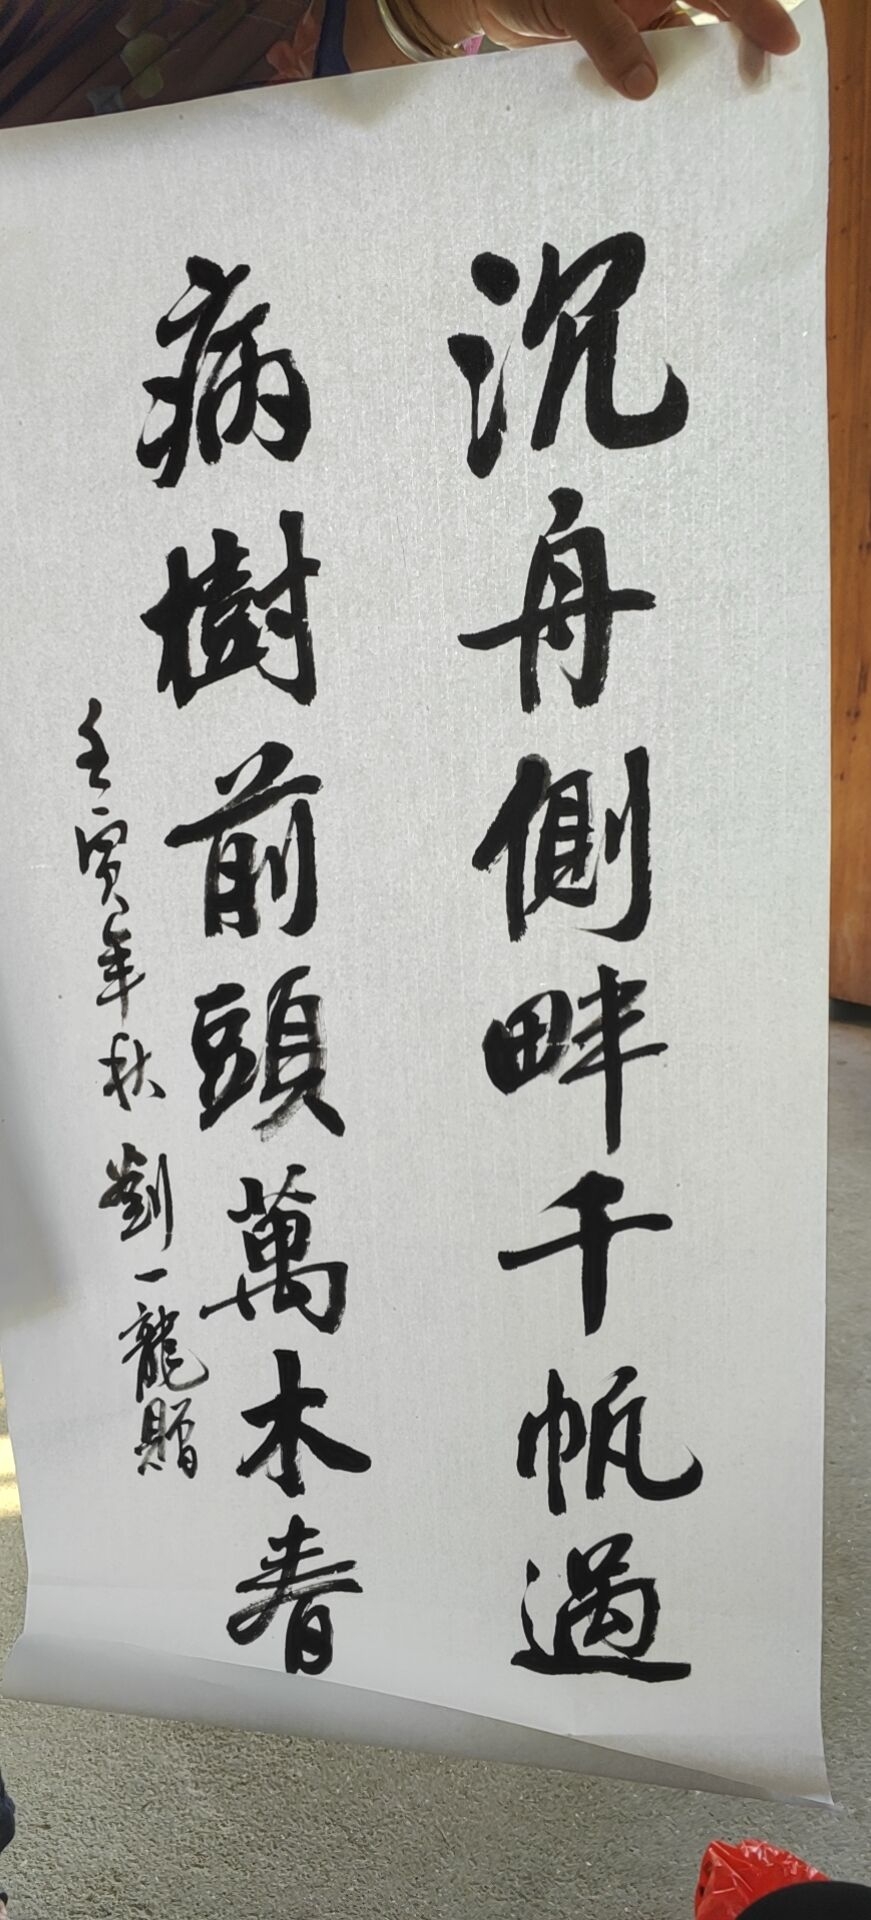 沉舟側畔千帆過
病樹前頭萬木春
壬寅年秋劉一龍贈